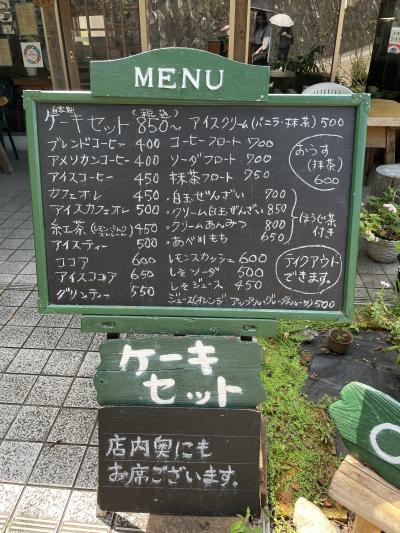 MENU
自家製
(税込)
ケーキセット 850〜
ブレンドコーヒー 400
アメリカンコーヒー 400
アイスコーヒー 450
カフェオレ 450
アイスカフェオレ 500
紅茶(レモン・ミルク) 450
アイスティー 500
ココア 600
アイスココア 650
グリンティー 550
アイスクリーム(バニラ・抹茶) 500
コーヒーフロート 700
ソーダフロート 700
抹茶フロート 750
白玉ぜんざい 700
クリーム白玉ぜんざい 850
クリームあんみつ 800
あべ川もち 650
ほうじ茶
付き
レモンスカッシュ 600
しそソーダ 500
しそジュース 450
ジュース(オレンジ アップル・グレープフルーツ) 500
おうす
(抹茶)
600
テイクアウト
できます。
ケーキ
セット
店内奥にも
お席ございます。